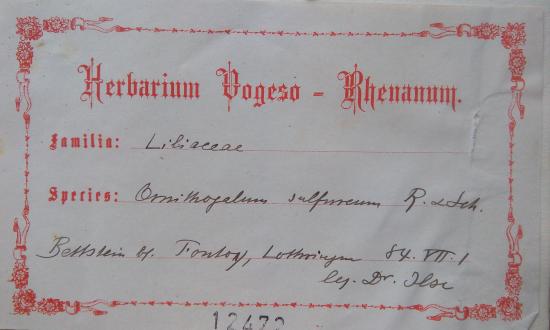 Herbarium Vogeso - Rhenanum.
Familia: Liliaceae
Species: Ornithogalum sulfureum R. & Sch.
Bettstein bf. Fontoy, Lothringen 84. VII. 1
leg. Dr. Ilse
12472